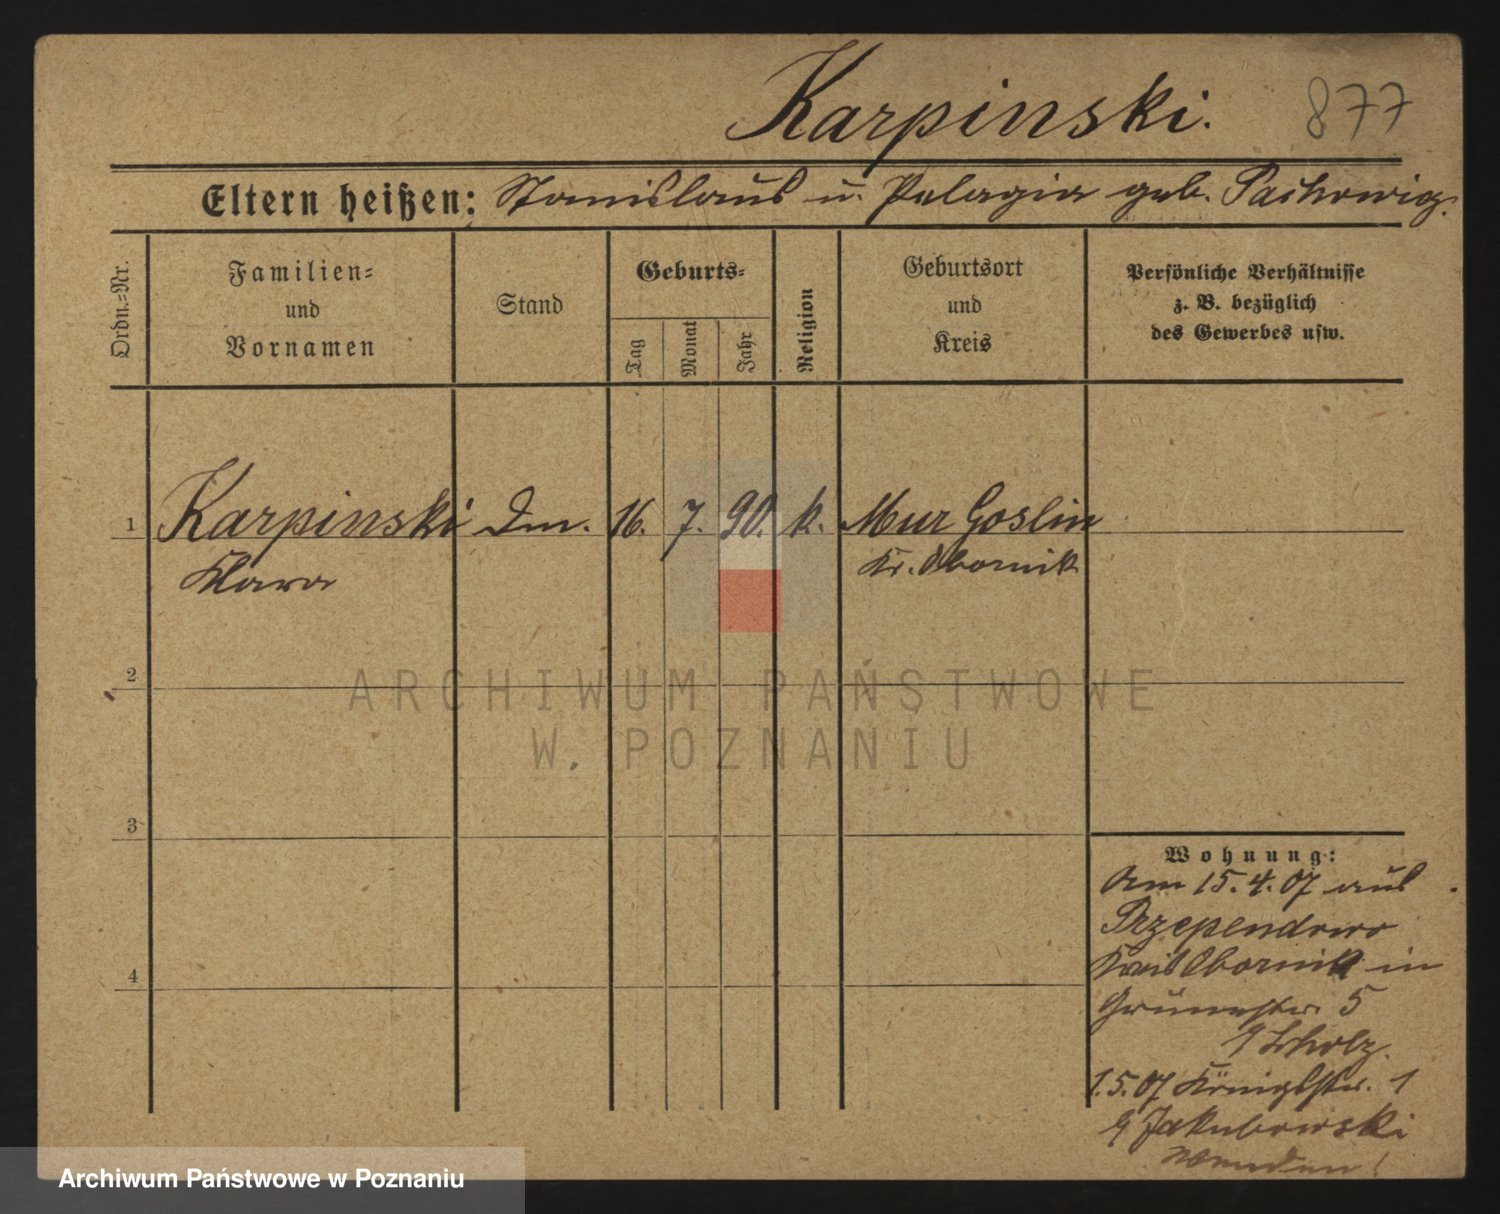 Karpinski. 877
Eltern heißen: Stanislaus u. Pelagia geb.
Ordn.-Nr.
Familien-
und
Vornamen
Stand
Geburts-
Tag
Monat
Jahr
Religion
Geburtsort
und
Kreis
Persönliche Verhältnisse
z. B. bezüglich
des Gewerbes usw.
1 Karpinski 16. 7. 90. k. Mur Goslin
Klara Kr. Obornik
2
3
4
Wohnung:
Am 15.4.07 aus
Przependowo
Kreis Obornik in
Grünestr. 5
Scholz.
1.5.07 Königstr. 1
Jakubowski
wenden!
ARCHIWUM PAŃSTWOWE
W POZNANIU
Archiwum Państwowe w Poznaniu